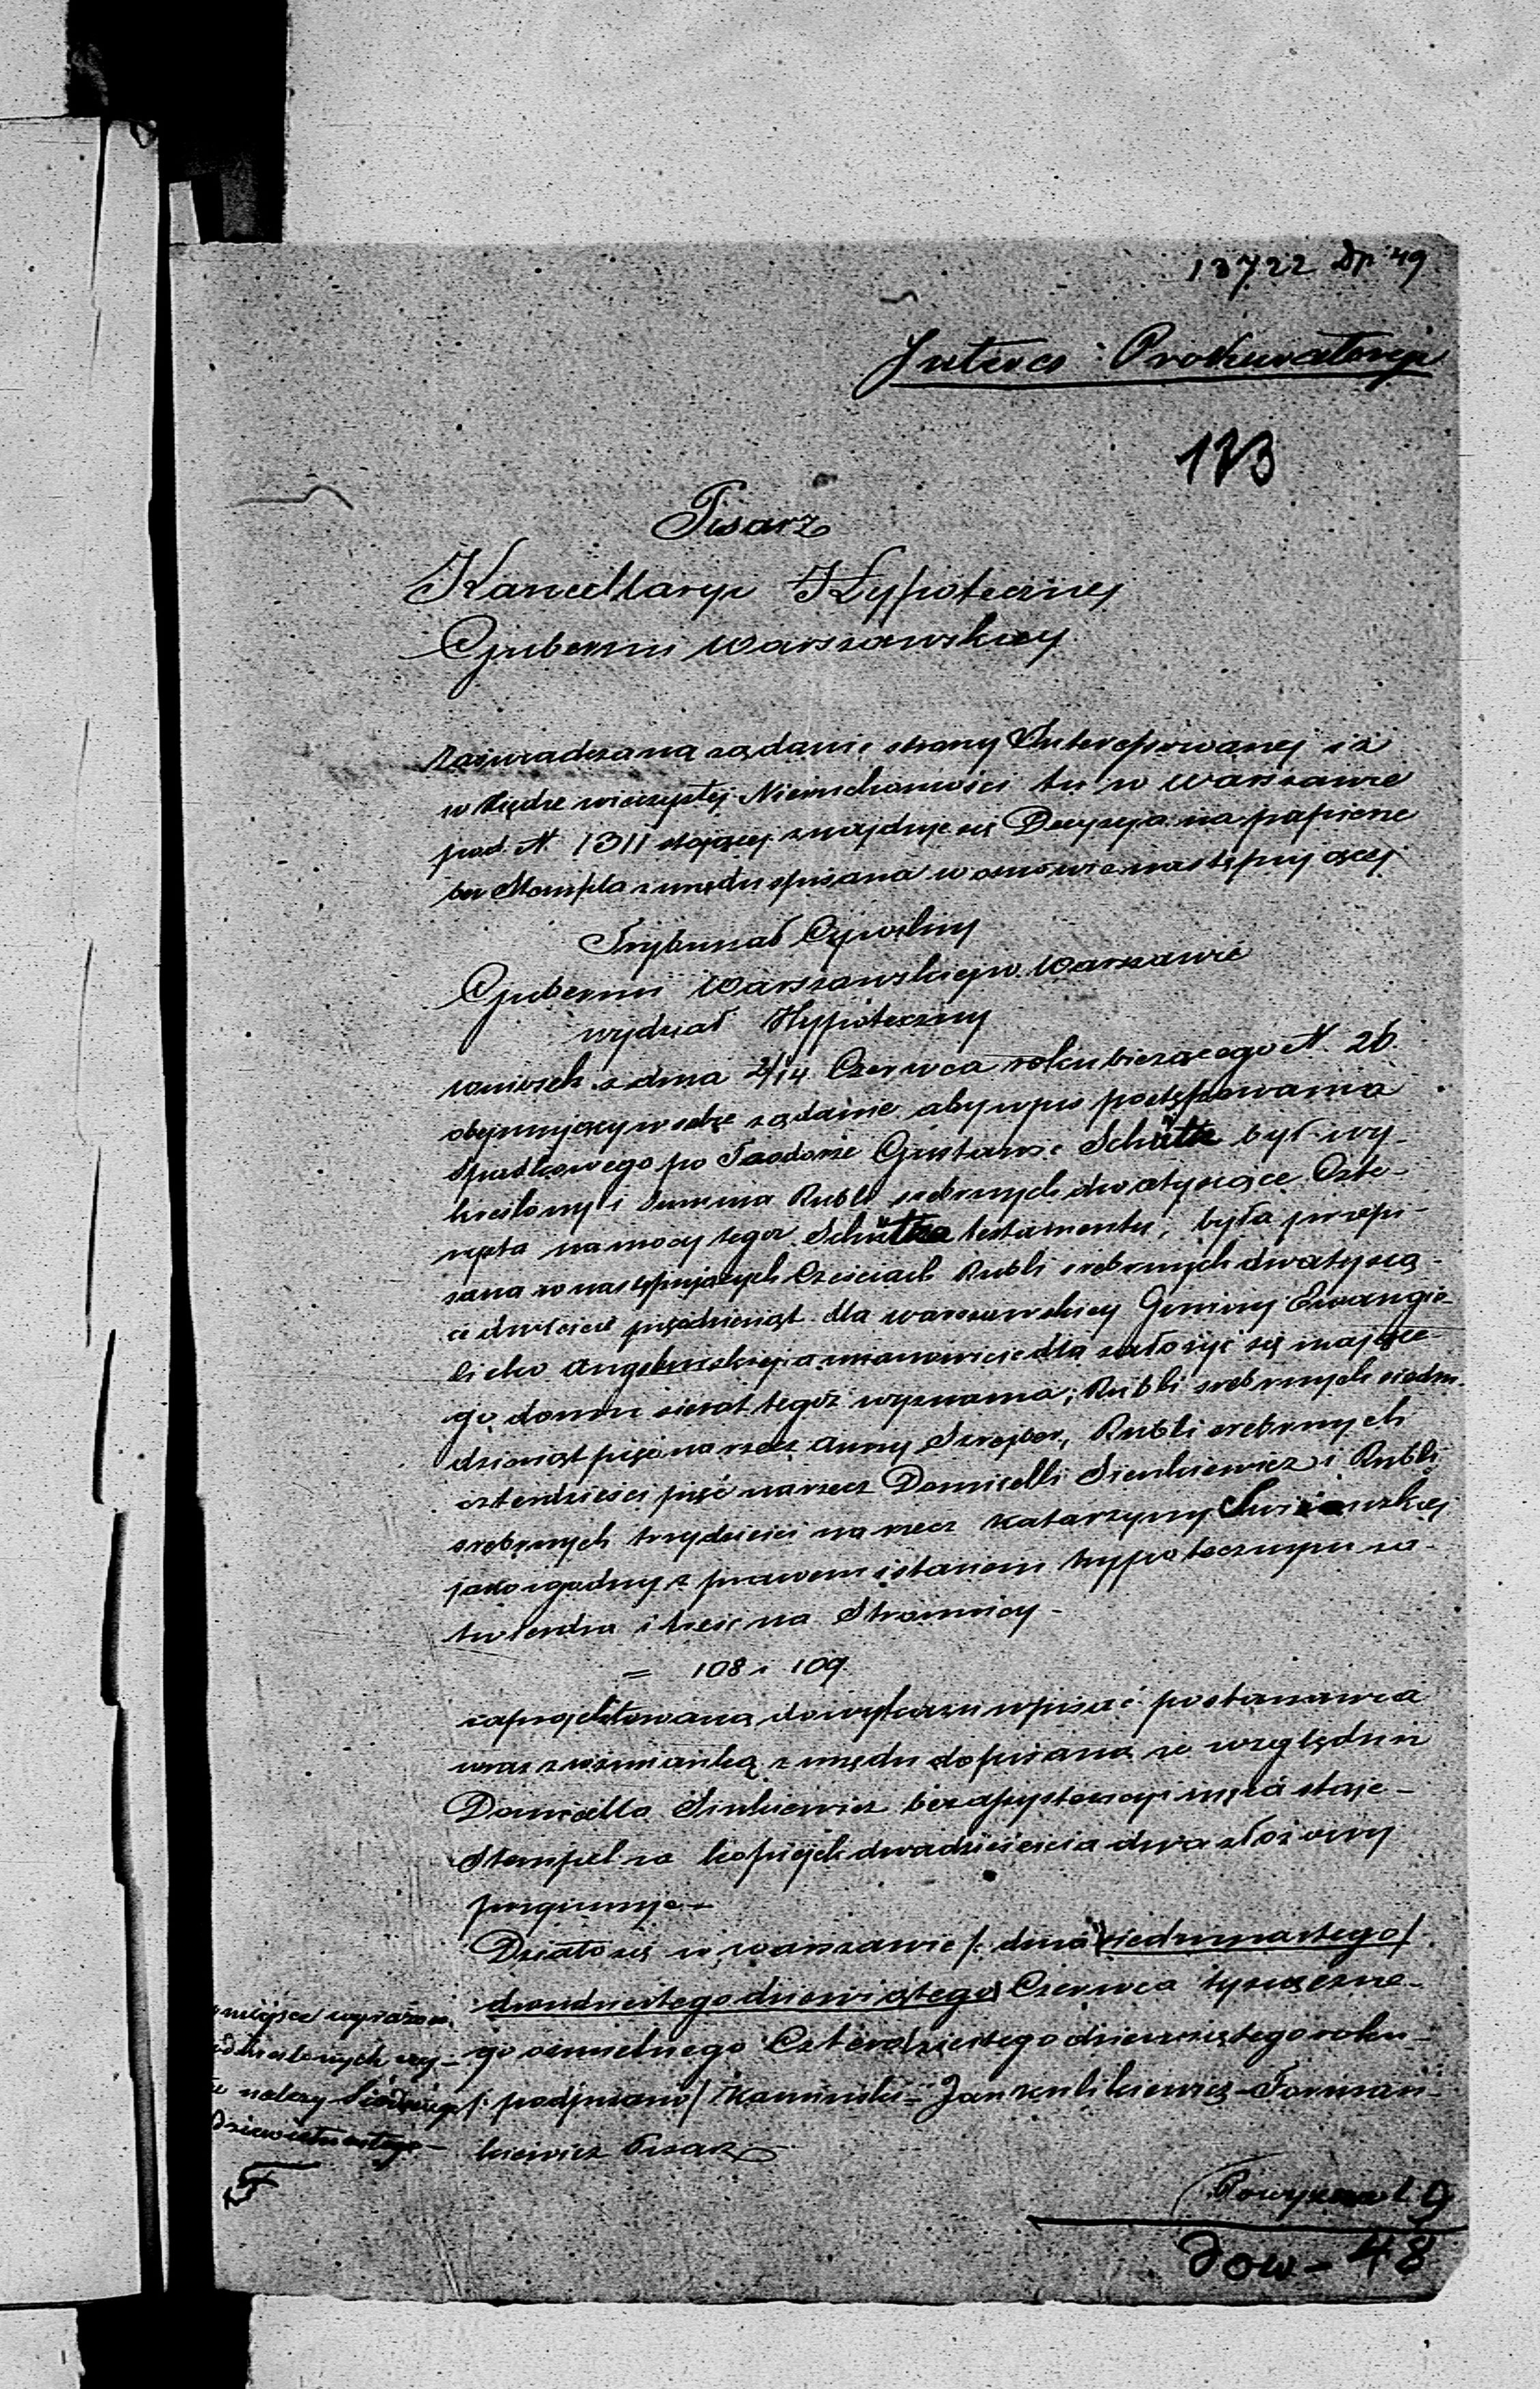 13722 Dp 49
Interes Prokuratoryi
173
Pisarz
Kancellaryi Hypoteczney
Gubernii Warszawskiey
Zaświadcza na żądanie strony Interessowanej iż
w Księdze wieczystej Nieruchomości tu w Warszawie
pod N. 1311 stojącej znajduje się Decyzya na papierze
bez Stempla z urzędu spisana w osnowie następującej
Trybunał Cywilny
Gubernii Warszawskiej w Warszawie
wydział Hypoteczny
wniosek z dnia 2/14 Czerwca roku bieżącego N. 26
obejmujący w sobie żądanie aby wpis postępowania
Spadkowego po Teodorze Gustawie Schütz był wy-
kreślony i Summa Rubli srebrnych dwatysiące Czte-
rysta na mocy tegoż Schütza testamentu, była przepi-
sana w następujących Częściach Rubli srebrnych dwatysią-
ce dwieście pięćdziesiąt dla warszawskiey Gminy Ewangie-
licko Augsburskiej a mianowicie dla założyć się mające-
go domu sierot tegoż wyznania; Rubli srebrnych siedm-
dziesiąt pięć na rzecz Anny Szrejber, Rubli srebrnych
czterdzieści pięć na rzecz Domicelli Sienkiewicz i Rubli
srebrnych trzydzieści na rzecz Katarzyny
jako zgodny z prawem i stanem hypotecznym za-
twierdza i treść na Stronnicy -
= 108 i 109.
zaprojektowaną do wykazu wpisać postanawia
wraz z wzmianką z urzędu dopisaną że względnie
Domicella Sinkiewicz bez assystencyi męża staje -
Stempel za kopiejek dwadzieścia dwa złożony
przyjmuje -
Działo się w Warszawie /: dnia siedmnastego /
dwudziestego dziewiątego Czerwca tysiąc ośm-
go ośmsetnego Czterdziestego dziewiątego roku -
/: podpisano / Kamiński - Jan Kulikiewicz - Tomasz-
kiewicz Pisarz
miejsce wyrazów
należy
Dziewiętnastego -
Dow - 48